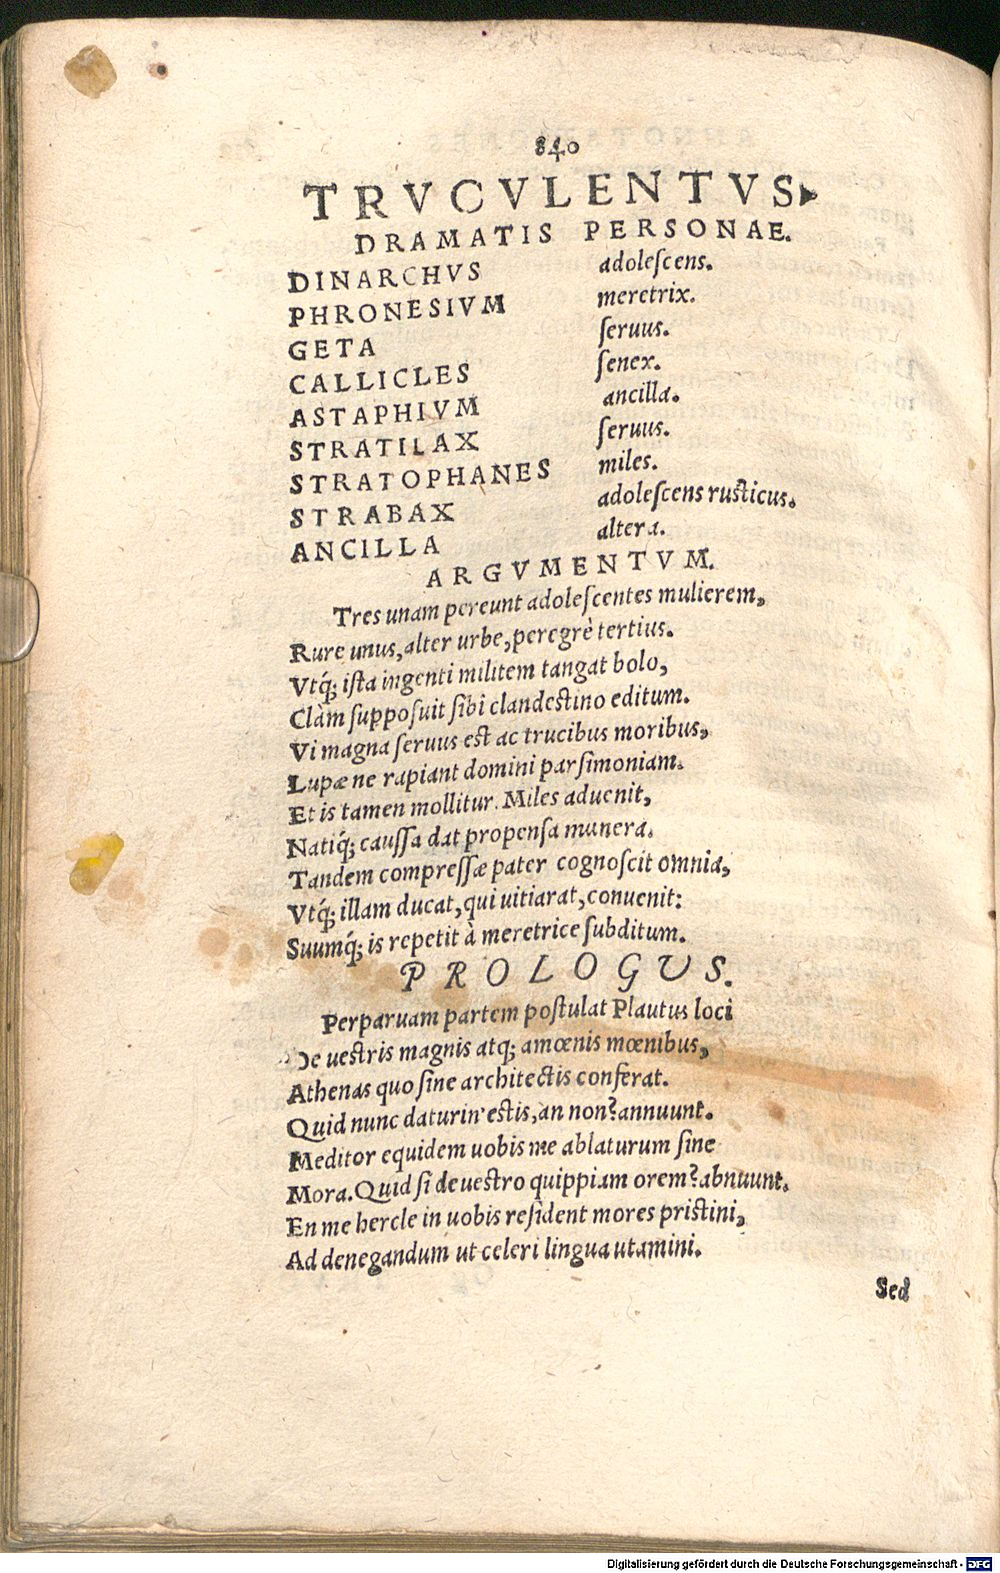 840
TRVCVLENTVS
DRAMATIS PERSONAE.
DINARCHVS adoleſcens.
PHRONESIVM meretrix.
GETA ſeruus.
CALLICLES ſenex.
ASTAPHIVM ancilla.
STRATILAX ſeruus.
STRATOPHANES miles.
STRABAX adoleſcens ruſticus.
ANCILLA altera.
ARGVMENTVM.
Tres unam pereunt adoleſcentes mulierem,
Rure unus, alter urbe, peregrè tertius.
Vtq́; iſta ingenti militem tangat bolo,
Clàm ſuppoſuit ſibi clandeſtino editum.
Vi magna ſeruus eſt ac trucibus moribus,
Lupæ ne rapiant domini parſimoniam.
Et is tamen mollitur. Miles aduenit,
Natiq́; cauſſa dat propenſa munera.
Tandem compreſſæ pater cognoſcit omnia,
Vtq́; illam ducat, qui uitiarat, conuenit:
Suumq́; is repetit à meretrice ſubditum.
PROLOGUS.
Perparuam partem poſtulat Plautus loci
De ueſtris magnis atq; amœnis mœnibus,
Athenas quo ſine architectis conferat.
Quid nunc daturin' eſtis, an non? annuunt.
Meditor equidem uobis me ablaturum ſine
Mora. Quid ſi de ueſtro quippiam orem? abnuunt.
En me hercle in uobis reſident mores priſtini,
Ad denegandum ut celeri lingua utamini.
Sed
Digitalisierung gefördert durch die Deutsche Forschungsgemeinschaft - DFG